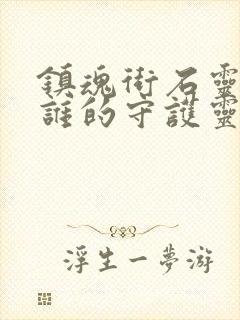 鎮魂街石靈
誰的守護靈
浮生一夢游